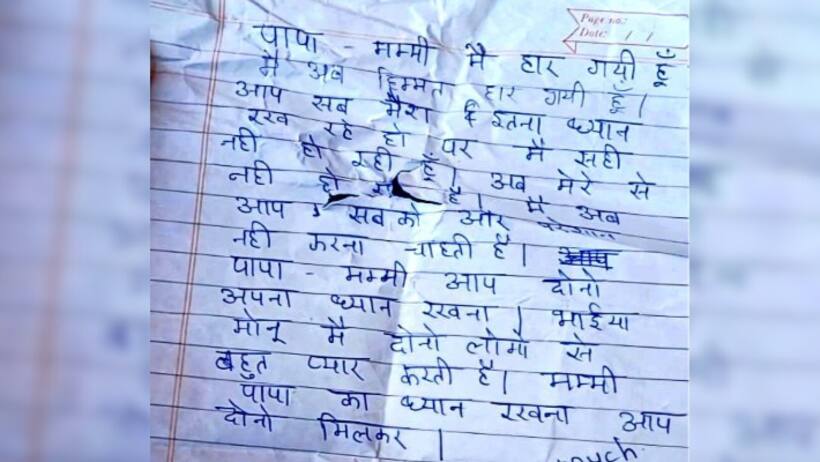 Page no.:
Date: / /
पापा - मम्मी मै हार गयी हूँ
मै अब हिम्मत हार गयी हूँ।
आप सब मैरा इतना ध्यान
रख रहे हो पर मै सही
नही हो रही हूँ। अब मेरे से
नही हो है। मै अब
आप सब को और परेशान
नही करना चाहती है।
पापा - मम्मी आप दोनो
अपना ध्यान रखना। भाईया
मोनू मै दोनो लोगो से
बहुत प्यार करती है। मम्मी
पापा का ध्यान रखना आप
दोनो मिलकर।